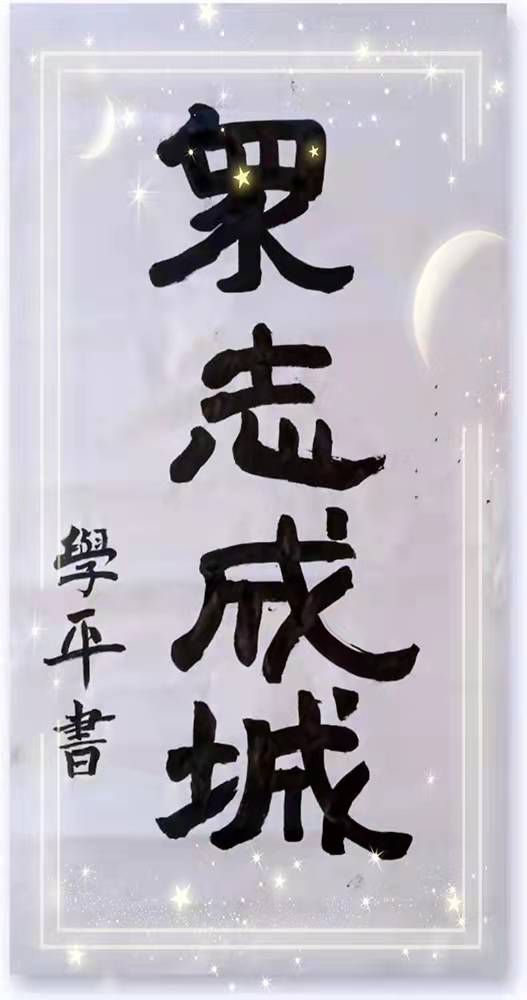 眾志成城
學平書